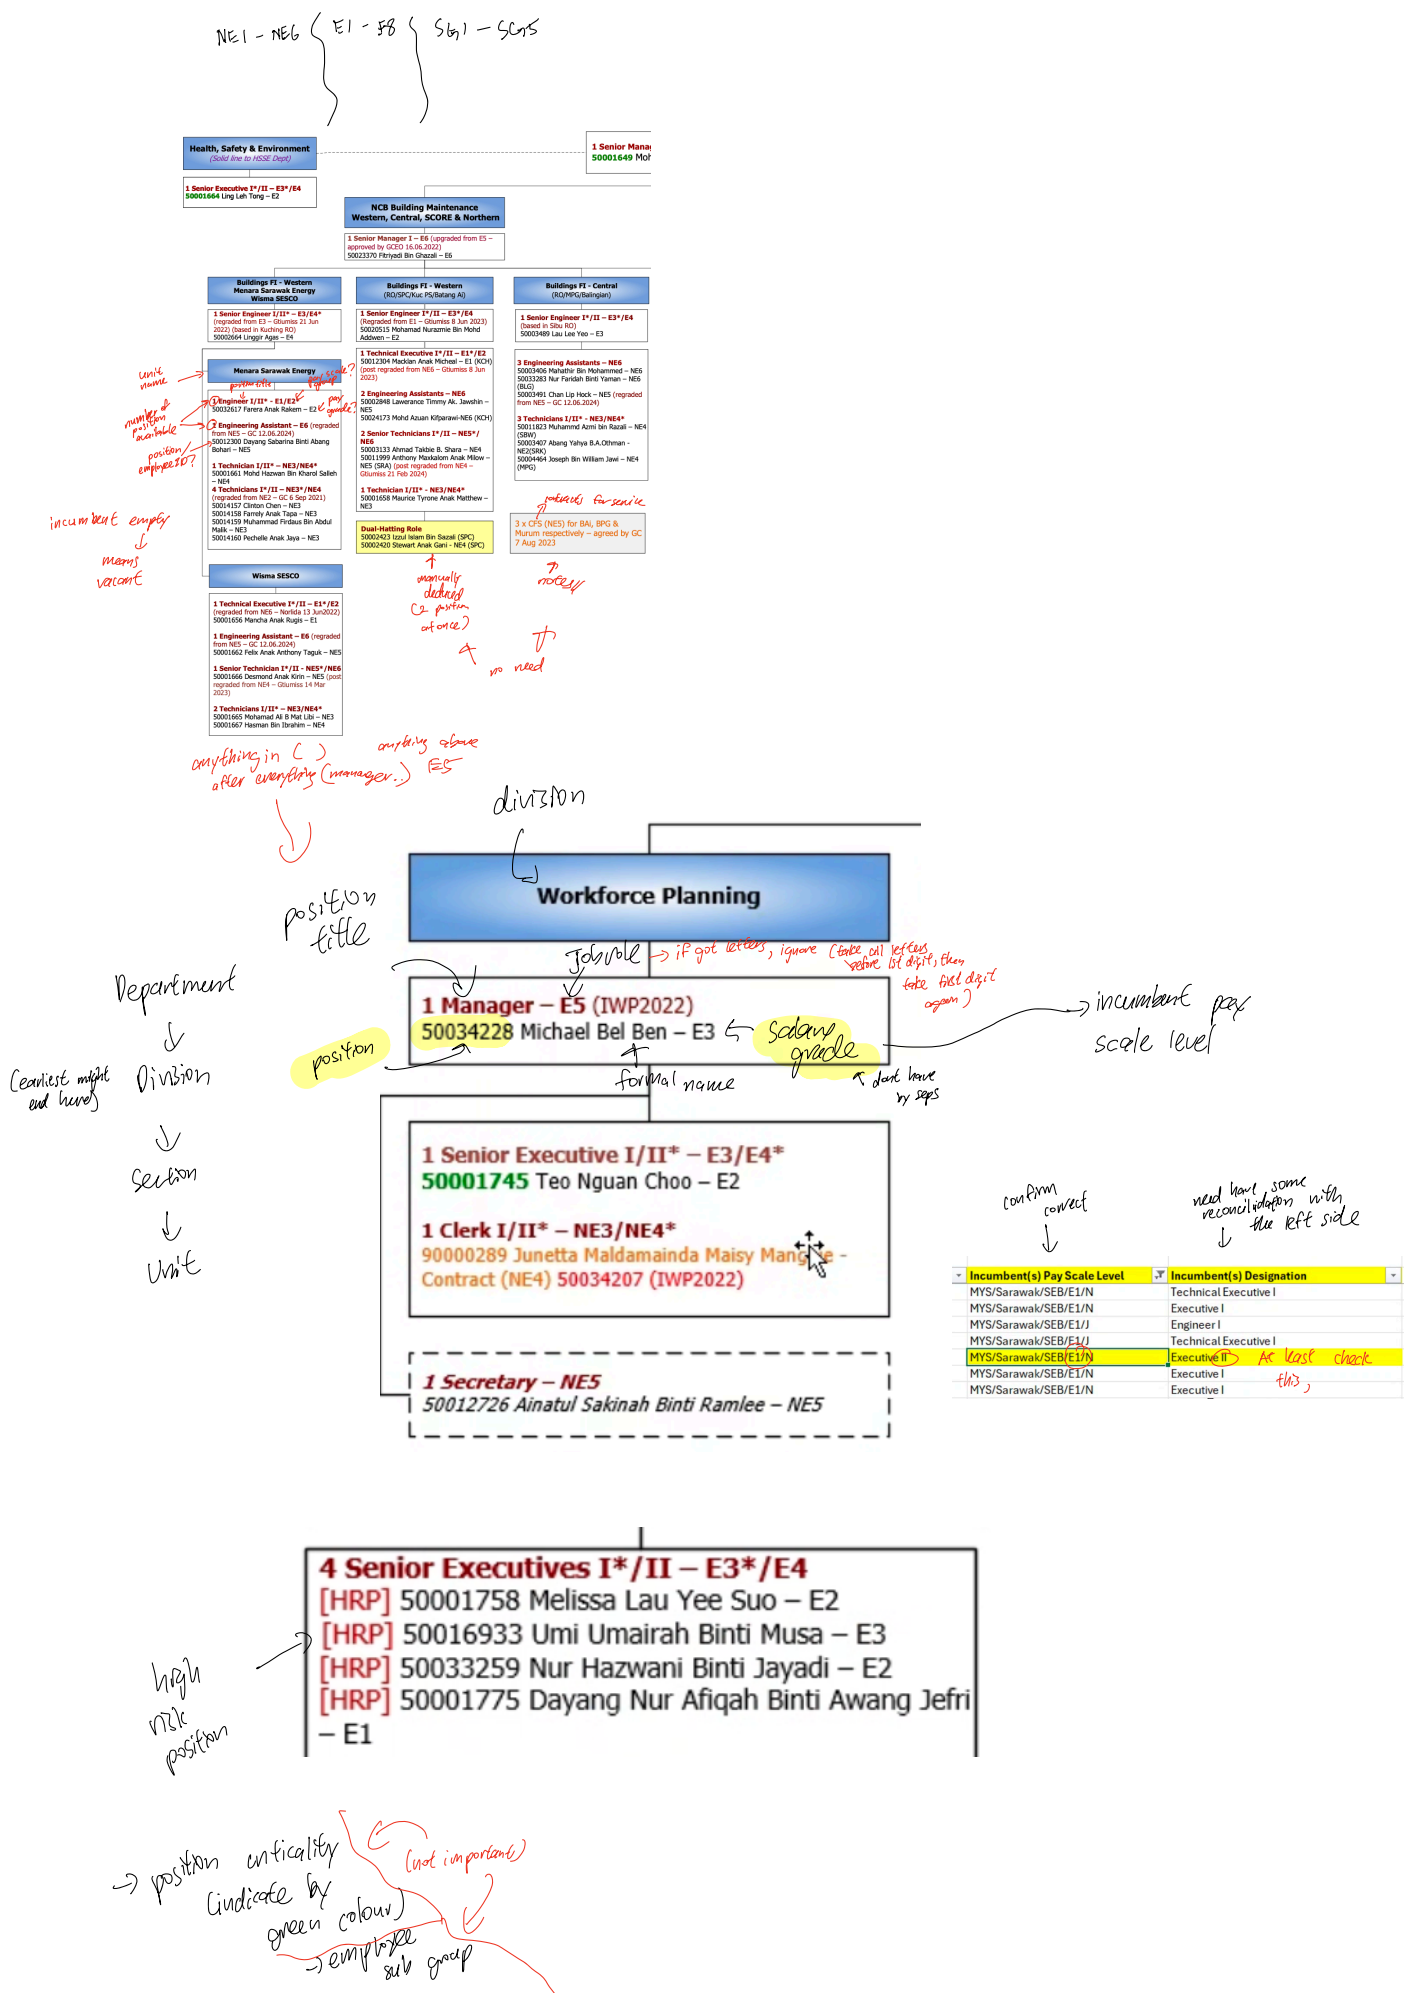 NE1 - NE6 E1 - E8 SG1 - SG5
Health, Safety & Environment
(Solid line to HSSE Dept)
1 Senior Executive I*/II – E3*/E4
50001664 Ling Leh Tong – E2
1 Senior Manag
50001649 Moh
NCB Building Maintenance
Western, Central, SCORE & Northern
1 Senior Manager I – E6 (upgraded from E5 –
approved by GCEO 16.06.2022)
50023370 Fitriyadi Bin Ghazali – E6
Buildings FI - Western
Menara Sarawak Energy
Wisma SESCO
1 Senior Engineer I/II* – E3/E4*
(regraded from E3 – Gtiumiss 21 Jun
2022) (based in Kuching RO)
50002664 Linggir Agas – E4
Menara Sarawak Energy
1 Engineer I/II* - E1/E2*
50032617 Farera Anak Rakem – E2
1 Engineering Assistant – E6 (regraded
from NE5 – GC 12.06.2024)
50012300 Dayang Sabarina Binti Abang
Bohari – NE5
1 Technician I/II* – NE3/NE4*
50001661 Mohd Hazwan Bin Kharol Salleh
– NE4
4 Technicians I*/II – NE3*/NE4
(regraded from NE2 – GC 6 Sep 2021)
50014157 Clinton Chen – NE3
50014158 Farrely Anak Tapa – NE3
50014159 Muhammad Firdaus Bin Abdul
Malik – NE3
50014160 Pechelle Anak Jaya – NE3
unit
name
position title
pay scale
group?
pay
grade?
number of
position
available
position/
employee ID?
incumbent empty
means
vacant
Wisma SESCO
1 Technical Executive I*/II – E1*/E2
(regraded from NE6 – Norlida 13 Jun2022)
50001656 Mancha Anak Rugis – E1
1 Engineering Assistant – E6 (regraded
from NE5 – GC 12.06.2024)
50001662 Felix Anak Anthony Taguk – NE5
1 Senior Technician I*/II - NE5*/NE6
50001666 Desmond Anak Kirin – NE5 (post
regraded from NE4 – Gtiumiss 14 Mar
2023)
2 Technicians I/II* – NE3/NE4*
50001665 Mohamad Ali B Mat Libi – NE3
50001667 Hasman Bin Ibrahim – NE4
Buildings FI - Western
(RO/SPC/Kuc PS/Batang Ai)
1 Senior Engineer I*/II – E3*/E4
(Regraded from E1 – Gtiumiss 8 Jun 2023)
50020515 Mohamad Nurazmie Bin Mohd
Addwen – E2
1 Technical Executive I*/II – E1*/E2
50012304 Macklan Anak Micheal – E1 (KCH)
(post regraded from NE6 – Gtiumiss 8 Jun
2023)
2 Engineering Assistants – NE6
50002848 Lawerance Timmy Ak. Jawshin –
NE5
50024173 Mohd Azuan Kifparawi-NE6 (KCH)
2 Senior Technicians I*/II – NE5*/
NE6
50003133 Ahmad Takbie B. Shara – NE4
50011999 Anthony Maxkalom Anak Milow –
NE5 (SRA) (post regraded from NE4 –
Gtiumiss 21 Feb 2024)
1 Technician I/II* - NE3/NE4*
50001658 Maurice Tyrone Anak Matthew –
NE3
Dual-Hatting Role
50002423 Izzul Islam Bin Sazali (SPC)
50002420 Stewart Anak Gani - NE4 (SPC)
manually
deduced
(2 position
at once)
Buildings FI - Central
(RO/MPG/Balingian)
1 Senior Engineer I*/II – E3*/E4
(based in Sibu RO)
50003489 Lau Lee Yeo – E3
3 Engineering Assistants – NE6
50003406 Mahathir Bin Mohammed – NE6
50033283 Nur Faridah Binti Yaman – NE6
(BLG)
50003491 Chan Lip Hock – NE5 (regraded
from NE5 – GC 12.06.2024)
3 Technicians I/II* - NE3/NE4*
50011823 Muhammd Azmi bin Razali – NE4
(SBW)
50003407 Abang Yahya B.A.Othman -
NE2(SRK)
50004464 Joseph Bin William Jawi – NE4
(MPG)
contracts for service
3 x CFS (NE5) for BAi, BPG &
Murum respectively – agreed by GC
7 Aug 2023
notes
no need
anything in ( )
after everything (manager..)
anything above
E5
division
Workforce Planning
position
title
Job role
if got letters, ignore (take all letters
before 1st digit, then
take first digit
again)
1 Manager – E5 (IWP2022)
50034228 Michael Bel Ben – E3
position
formal name
salary
grade
dont have
by seps
incumbent pay
scale level
Department
Division
(earliest might
end here)
Section
Unit
1 Senior Executive I/II* – E3/E4*
50001745 Teo Nguan Choo – E2
1 Clerk I/II* – NE3/NE4*
90000289 Junetta Maldamainda Maisy Mang e -
Contract (NE4) 50034207 (IWP2022)
1 Secretary – NE5
50012726 Ainatul Sakinah Binti Ramlee – NE5
confirm
correct
need have some
reconciliation with
the left side
Incumbent(s) Pay Scale Level Incumbent(s) Designation
MYS/Sarawak/SEB/E1/N Technical Executive I
MYS/Sarawak/SEB/E1/N Executive I
MYS/Sarawak/SEB/E1/J Engineer I
MYS/Sarawak/SEB/E1/J Technical Executive I
MYS/Sarawak/SEB/E1/N Executive II
MYS/Sarawak/SEB/E1/N Executive I
MYS/Sarawak/SEB/E1/N Executive I
At least check
this,
4 Senior Executives I*/II – E3*/E4
[HRP] 50001758 Melissa Lau Yee Suo – E2
[HRP] 50016933 Umi Umairah Binti Musa – E3
[HRP] 50033259 Nur Hazwani Binti Jayadi – E2
[HRP] 50001775 Dayang Nur Afiqah Binti Awang Jefri
– E1
high
risk
position
position criticality
(indicate by
green colour)
(not important)
employee
sub group